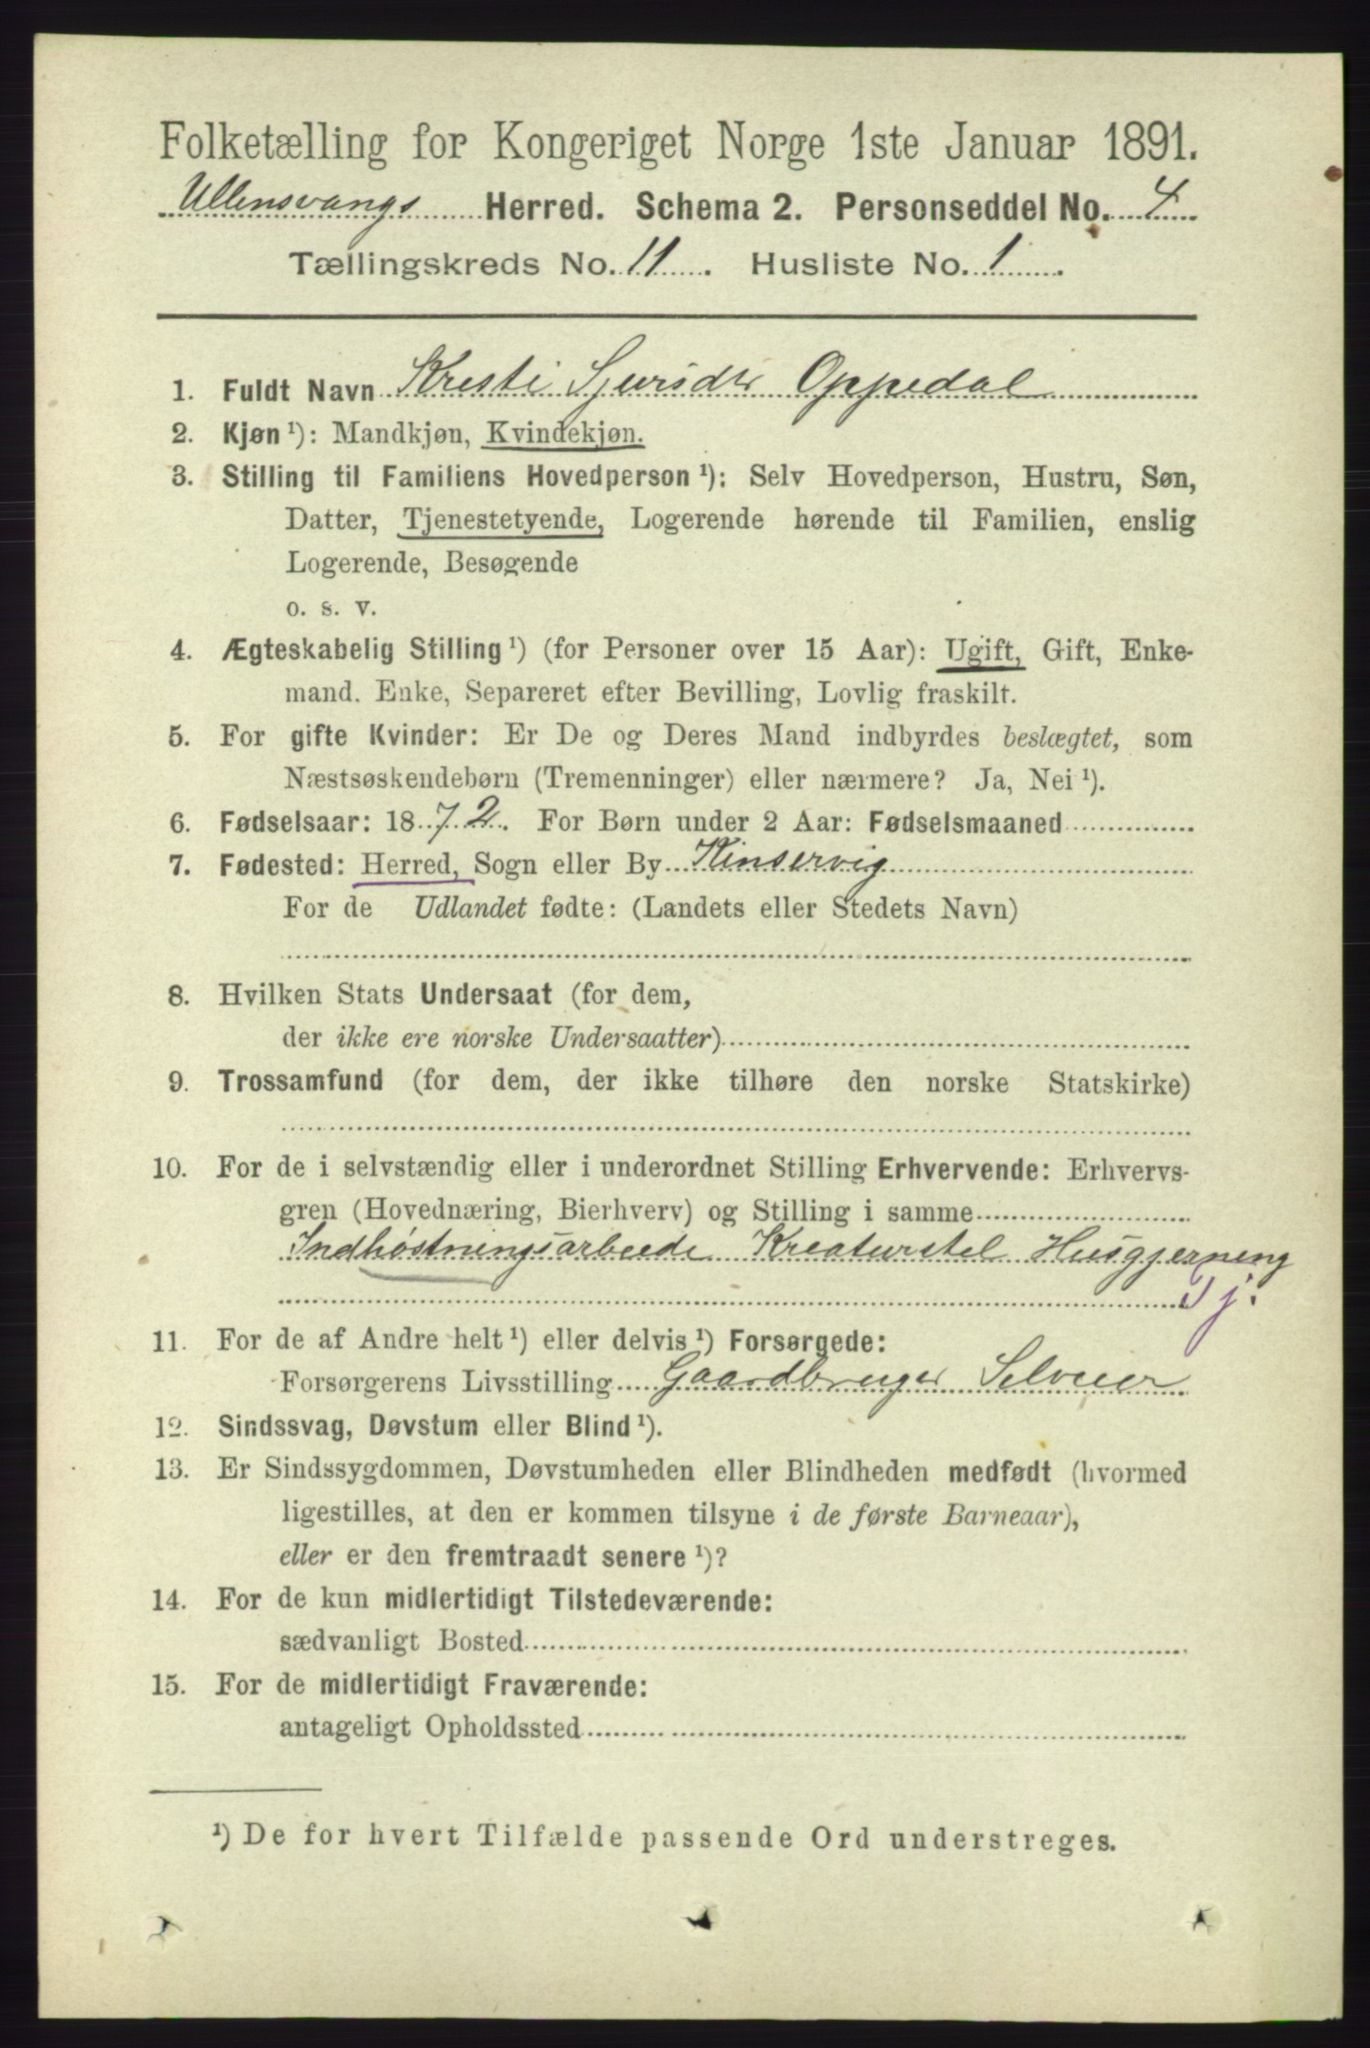 Folketælling for Kongeriget Norge 1ste Januar 1891.
Ullensvangs Herred. Schema 2. Personseddel No. 4
Tællingskreds No. 11. Husliste No. 1.
1. Fuldt Navn Kresti Sjursdtr Oppedal
2. Kjøn ¹): Mandkjøn, Kvindekjøn.
3. Stilling til Familiens Hovedperson ¹): Selv Hovedperson, Hustru, Søn,
Datter, Tjenestetyende, Logerende hørende til Familien, enslig
Logerende, Besøgende
o. s. v.
4. Ægteskabelig Stilling ¹) (for Personer over 15 Aar): Ugift, Gift, Enke-
mand. Enke, Separeret efter Bevilling, Lovlig fraskilt.
5. For gifte Kvinder: Er De og Deres Mand indbyrdes beslægtet, som
Næstsøskendebørn (Tremenninger) eller nærmere? Ja, Nei ¹).
6. Fødselsaar: 1872. For Børn under 2 Aar: Fødselsmaaned
7. Fødested: Herred, Sogn eller By Kinservig
For de Udlandet fødte: (Landets eller Stedets Navn)
8. Hvilken Stats Undersaat (for dem,
der ikke ere norske Undersaatter)
9. Trossamfund (for dem, der ikke tilhøre den norske Statskirke)
10. For de i selvstændig eller i underordnet Stilling Erhvervende: Erhvervs-
gren (Hovednæring, Bierhverv) og Stilling i samme
Indhøstningsarbeide Kreaturstel Husgjerning
Tj.
11. For de af Andre helt ¹) eller delvis ¹) Forsørgede:
Forsørgerens Livsstilling Gaardbruger Selveier
12. Sindssvag, Døvstum eller Blind ¹).
13. Er Sindssygdommen, Døvstumheden eller Blindheden medfødt (hvormed
ligestilles, at den er kommen tilsyne i de første Barneaar),
eller er den fremtraadt senere ¹)?
14. For de kun midlertidigt Tilstedeværende:
sædvanligt Bosted
15. For de midlertidigt Fraværende:
antageligt Opholdssted
¹) De for hvert Tilfælde passende Ord understreges.